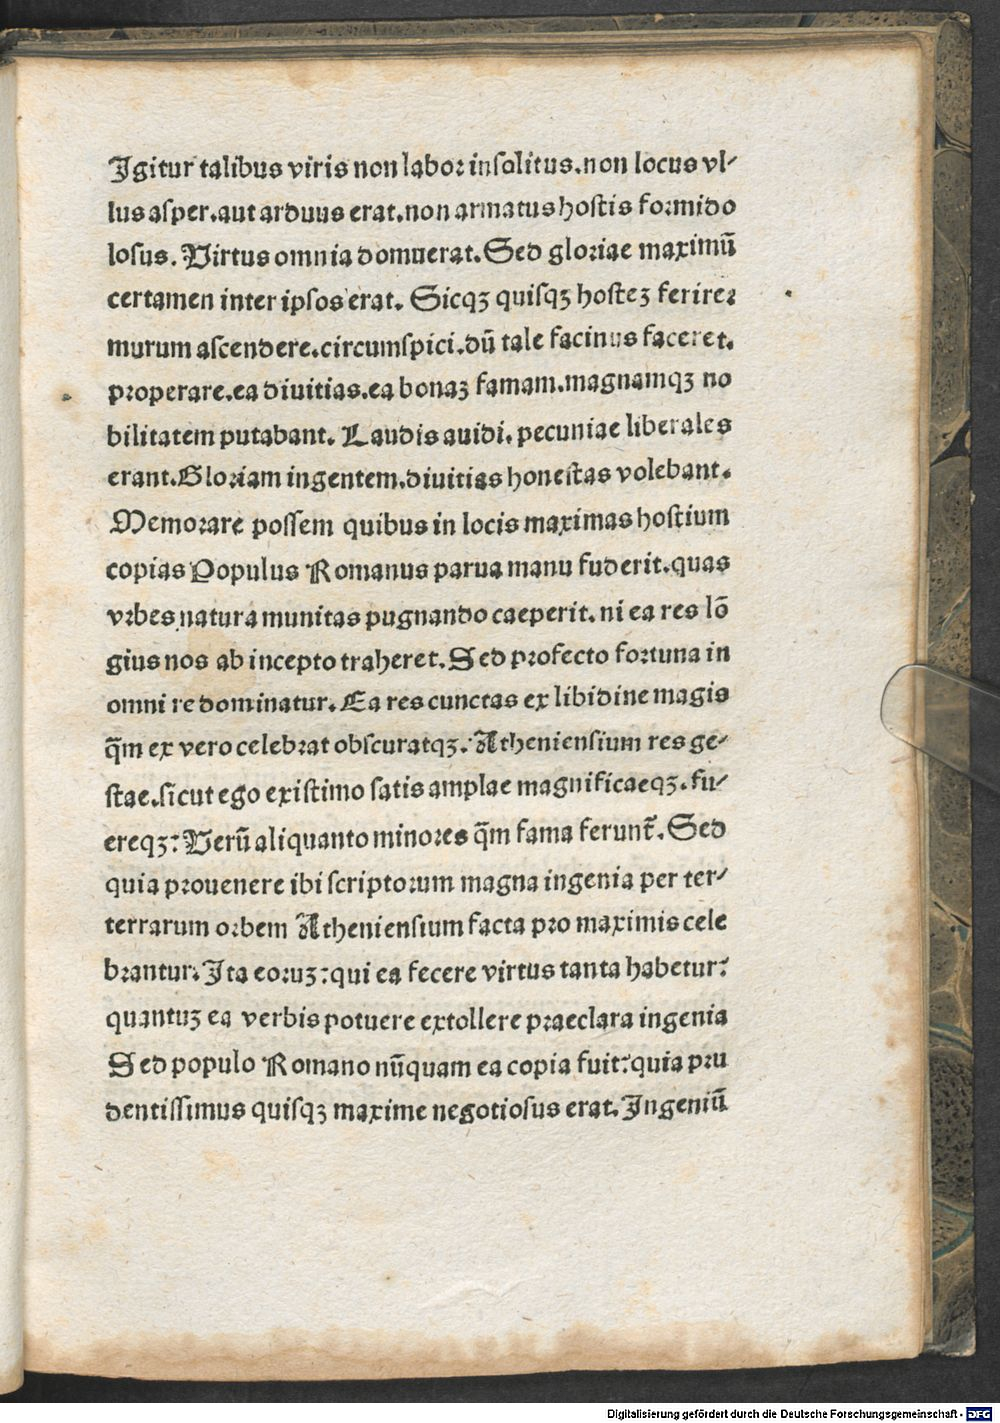 Igitur talibus viris non labor insolitus.non locus vl-
lus asper.aut arduus erat.non armatus hostis formido
losus. Virtus omnia domuerat. Sed gloriae maximū
certamen inter ipsos erat. Sicqꝫ quisqꝫ hosteꝫ ferire:
murum ascendere.circumspici.dū tale facinus faceret.
properare.ea diuitias.ea bonaꝫ famam.magnamqꝫ no
bilitatem putabant. Laudis auidi. pecuniae liberales
erant.Gloriam ingentem.diuitias honestas volebant.
Memorare possem quibus in locis maximas hostium
copias Populus Romanus parua manu fuderit.quas
vrbes natura munitas pugnando caeperit. ni ea res lō
gius nos ab incepto traheret. Sed profecto fortuna in
omni re dominatur. Ea res cunctas ex libidine magis
q̄m ex vero celebrat obscuratqꝫ. Atheniensium res ge-
stae.sicut ego existimo satis amplae magnificaeqꝫ. fu-
ereqꝫ: Verū aliquanto minores q̄m fama ferunt̄. Sed
quia prouenere ibi scriptorum magna ingenia per ter-
terrarum orbem Atheniensium facta pro maximis cele
brantur. Ita eoruꝫ: qui ea fecere virtus tanta habetur:
quantuꝫ ea verbis potuere extollere praeclara ingenia
Sed populo Romano nūquam ea copia fuit: quia pru
dentissimus quisqꝫ maxime negotiosus erat. Ingeniū
Digitalisierung gefördert durch die Deutsche Forschungsgemeinschaft - DFG